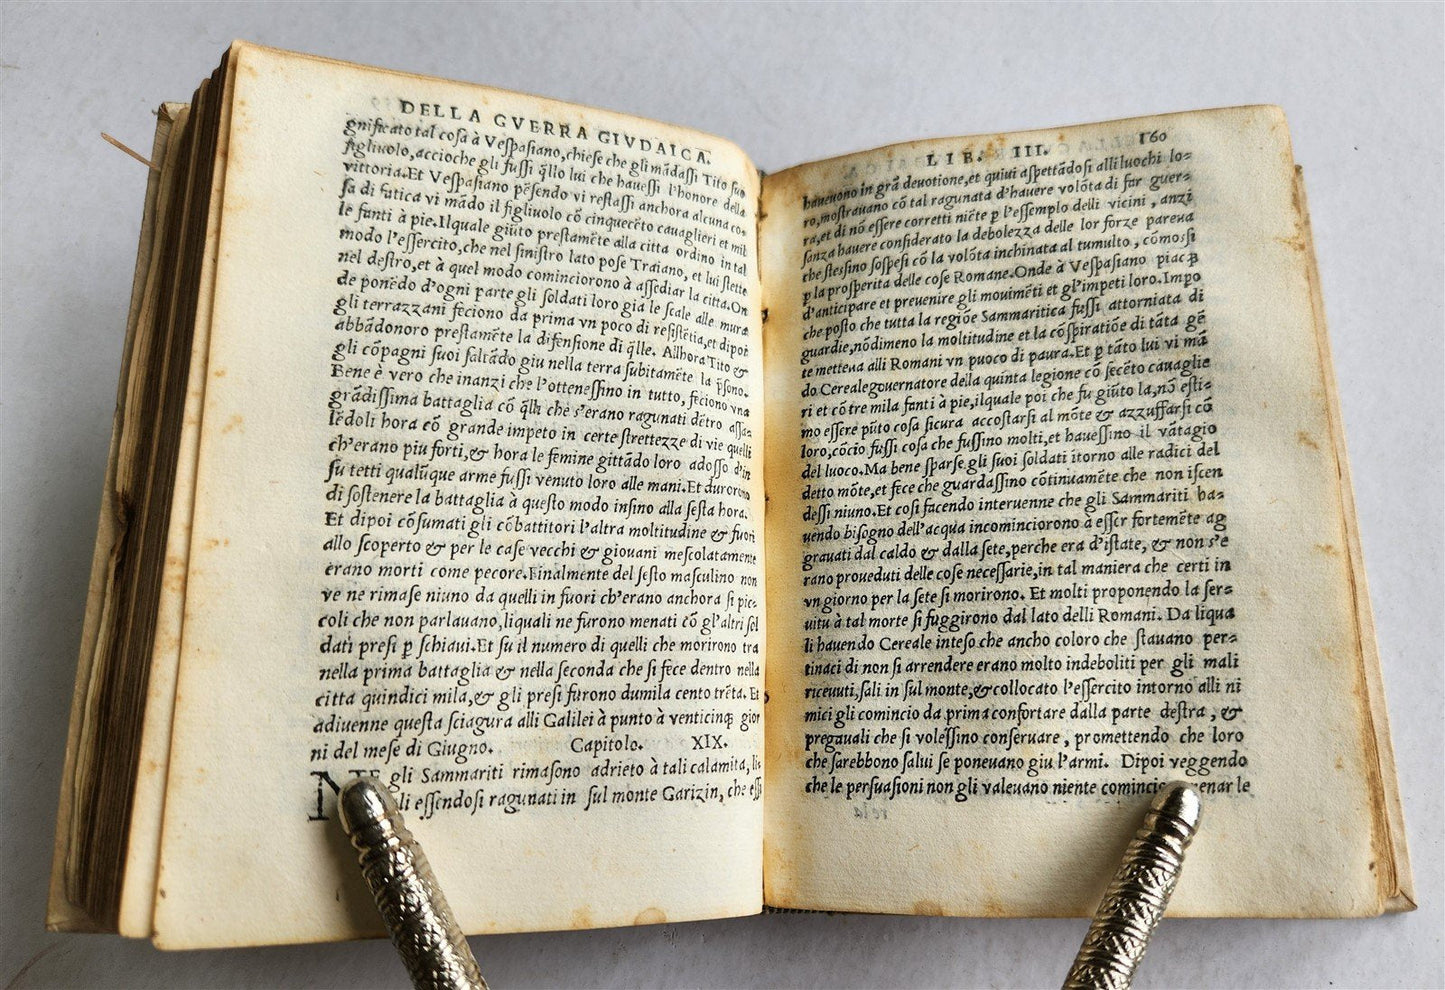 DELLA GVERRA GIVDAICA.
gnificato tal cosa à Vespasiano, chiese che gli mādassi Tito suo
figliuolo, accioche gli fussi q̄llo lui che hauessi l'honore della
vittoria. Et Vespasiano pēsendo vi restassi anchora alcuna co-
sa di fatica vi mādo il figliuolo cō cinquecēto cauaglieri et mil
le fanti à pie. Ilquale giūto prestamēte alla citta ordino in tal
modo l'essercito, che nel sinistro lato pose Traiano, et lui stette
nel destro, et à quel modo cominciorono à assediar la citta. On
de ponēdo d'ogni parte gli soldati loro gia le scale alle mura
gli terrazzani feciono da prima vn poco di resistētia, et dipoi
abbādonoro prestamēte la difensione di q̄lle. Allhora Tito &
gli cōpagni suoi saltādo giu nella terra subitamēte la p̄sono.
Bene è vero che inanzi che l'ottenessino in tutto, feciono vna
grādissima battaglia cō q̄lli che s'erano ragunati dētro assa-
lēdoli hora cō grande impeto in certe strettezze di vie quelli
ch'erano piu forti, & hora le femine gittādo loro adosso d'in
su tetti qualūque arme fussi venuto loro alle mani. Et durorono
di sostenere la battaglia à questo modo insino alla sesta hora.
Et dipoi cōsumati gli cōbattitori l'altra moltitudine & fuori
allo scoperto & per le case vecchi & giouani mescolatamente
erano morti come pecore. Finalmente del sesto masculino non
ve ne rimase niuno da quelli in fuori ch'erano anchora si pic-
coli che non parlauano, liquali ne furono menati cō gl'altri sol
dati presi p̄ schiaui. Et su il numero di quelli che morirono tra
nella prima battaglia & nella seconda che si fece dentro nella
citta quindici mila, & gli presi furono dumila cento trēta. Et
adiuenne questa sciagura alli Galilei à punto à venticinq; gior
ni del mese di Giugno. Capitolo. XIX.
TE gli Sammariti rimasono adrieto à tali calamita, li-
li essendosi ragunati in sul monte Garizin, che essi
LIB. III. 160
haueuono in grā deuotione, et quiui aspettādosi alli luochi lo-
ro, mostrauano cō tal ragunata d'hauere volōta di far guer-
ra, et di nō essere corretti niēte p̄ l'essemplo delli vicini, anzi
sanza hauere considerato la debolezza delle lor forze pareua
che stessino sospesi cō la volōta inchinata al tumulto, cōmossi
p̄ la prosperita delle cose Romane. Onde à Vespasiano piacq;
d'anticipare et preuenire gli mouimēti et gl'impeti loro. Impo
che posto che tutta la regiōe Sammaritica fussi attorniata di
guardie, nōdimeno la moltitudine et la cōspiratiōe di tāta gē
te metteua alli Romani vn puoco di paura. Et p̄ tāto lui vi mā
do Cereale gouernatore della quinta legione cō secēto cauaglie
ri et cō tre mila fanti à pie, ilquale poi che fu giūto la, nō esti-
mo essere pūto cosa sicura accostarsi al mōte & azzuffarsi cō
loro, cōcio fussi cosa che fussino molti, et hauessino il vātagio
del luoco. Ma bene sparse gli suoi soldati itorno alle radici del
detto mōte, et fece che guardassino cōtinuamēte che non iscen
dessi niuno. Et cosi facendo interuenne che gli Sammariti ha-
uendo bisogno dell'acqua incominciorono à esser fortemēte ag
grauati dal caldo & dalla sete, perche era d'istate, & non s'e
rano proueduti delle cose necessarie, in tal maniera che certi in
vn giorno per la sete si morirono. Et molti proponendo la ser-
uitu à tal morte si fuggirono dal lato delli Romani. Da liqua
li hauendo Cereale inteso che ancho coloro che stauano per-
tinaci di non si arrendere erano molto indeboliti per gli mali
riceuuti, sali in sul monte, & collocato l'essercito intorno alli ni
mici gli comincio da prima confortare dalla parte destra, &
pregauali che si volessino conseruare, promettendo che loro
che sarebbono salui se poneuano giu l'armi. Dipoi veggendo
che le persuasioni non gli valeuano niente comincio menar le